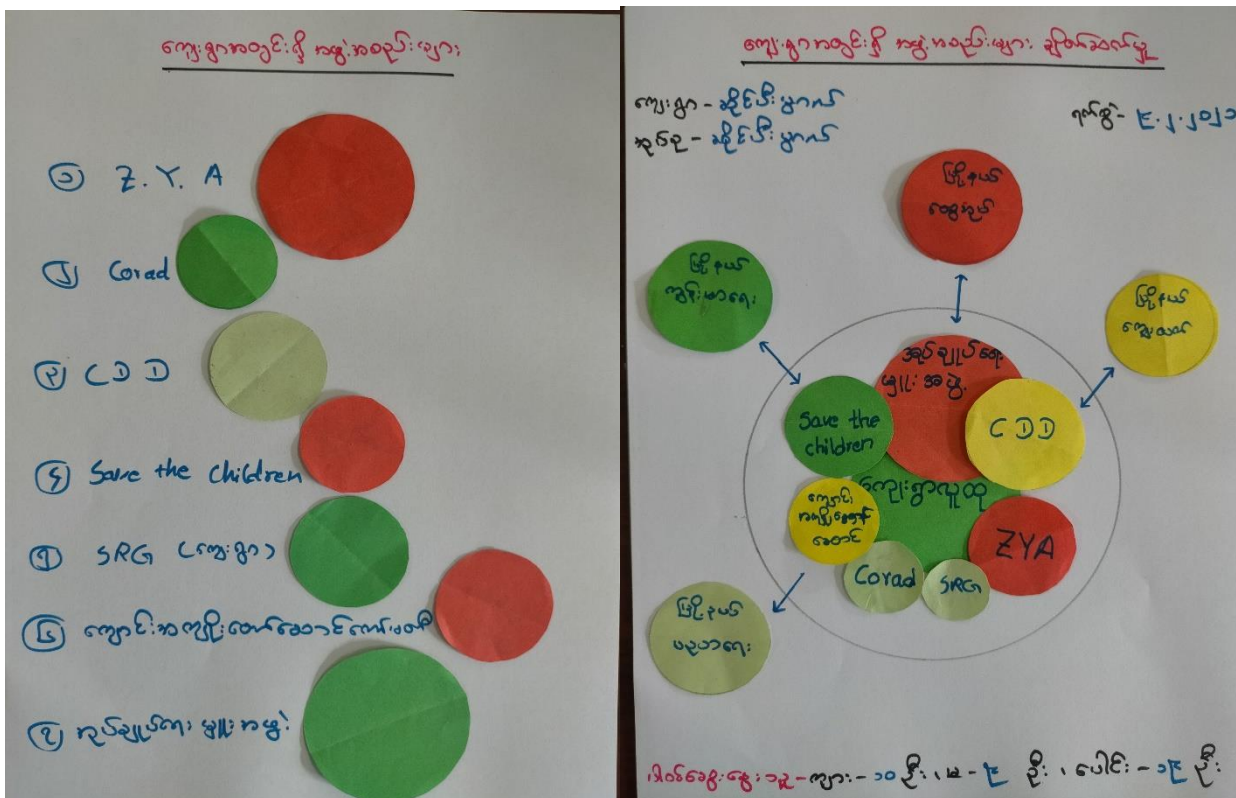 ကျေးရွာအတွင်းရှိ အဖွဲ့အစည်းများ
၁ Z. Y. A
၂ Corad
၃ CDD
၄ Save the children
၅ SRG (ကျေးရွာ)
၆ ကျောင်းအကျိုးတော်ဆောင်ကော်မတီ
၇ အုပ်ချုပ်ရေးမှူးအဖွဲ့
ကျေးရွာအတွင်းရှိ အဖွဲ့အစည်းများ ချိတ်ဆက်မှု
ကျေးရွာ - ဆိုင်ပီးမွာလ်
အုပ်စု - ဆိုင်ပီးမွာလ်
ရက်စွဲ - ၉.၂.၂၀၂၁
မြို့နယ်
ထွေအုပ်
မြို့နယ်
ကျန်းမာရေး
မြို့နယ်
ကျေးလက်
အုပ်ချုပ်ရေး
မှူးအဖွဲ့
Save the
children
CDD
ကျေးရွာလူထု
ကျောင်း
အကျိုးတော်
ဆောင်
ZYA
Corad
SRG
မြို့နယ်
ပညာရေး
ပါဝင်ဆွေးနွေးသူ - ကျား - ၁၀ ဦး ၊ မ - ၉ ဦး ၊ ပေါင်း - ၁၉ ဦး